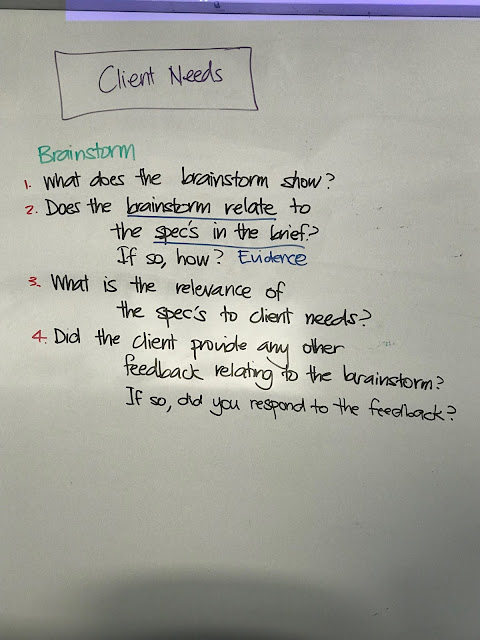 Client Needs
Brainstorm
1. What does the brainstorm show?
2. Does the brainstorm relate to
the spec's in the brief?
If so, how? Evidence
3. What is the relevance of
the spec's to client needs?
4. Did the client provide any other
feedback relating to the brainstorm?
If so, did you respond to the feedback?